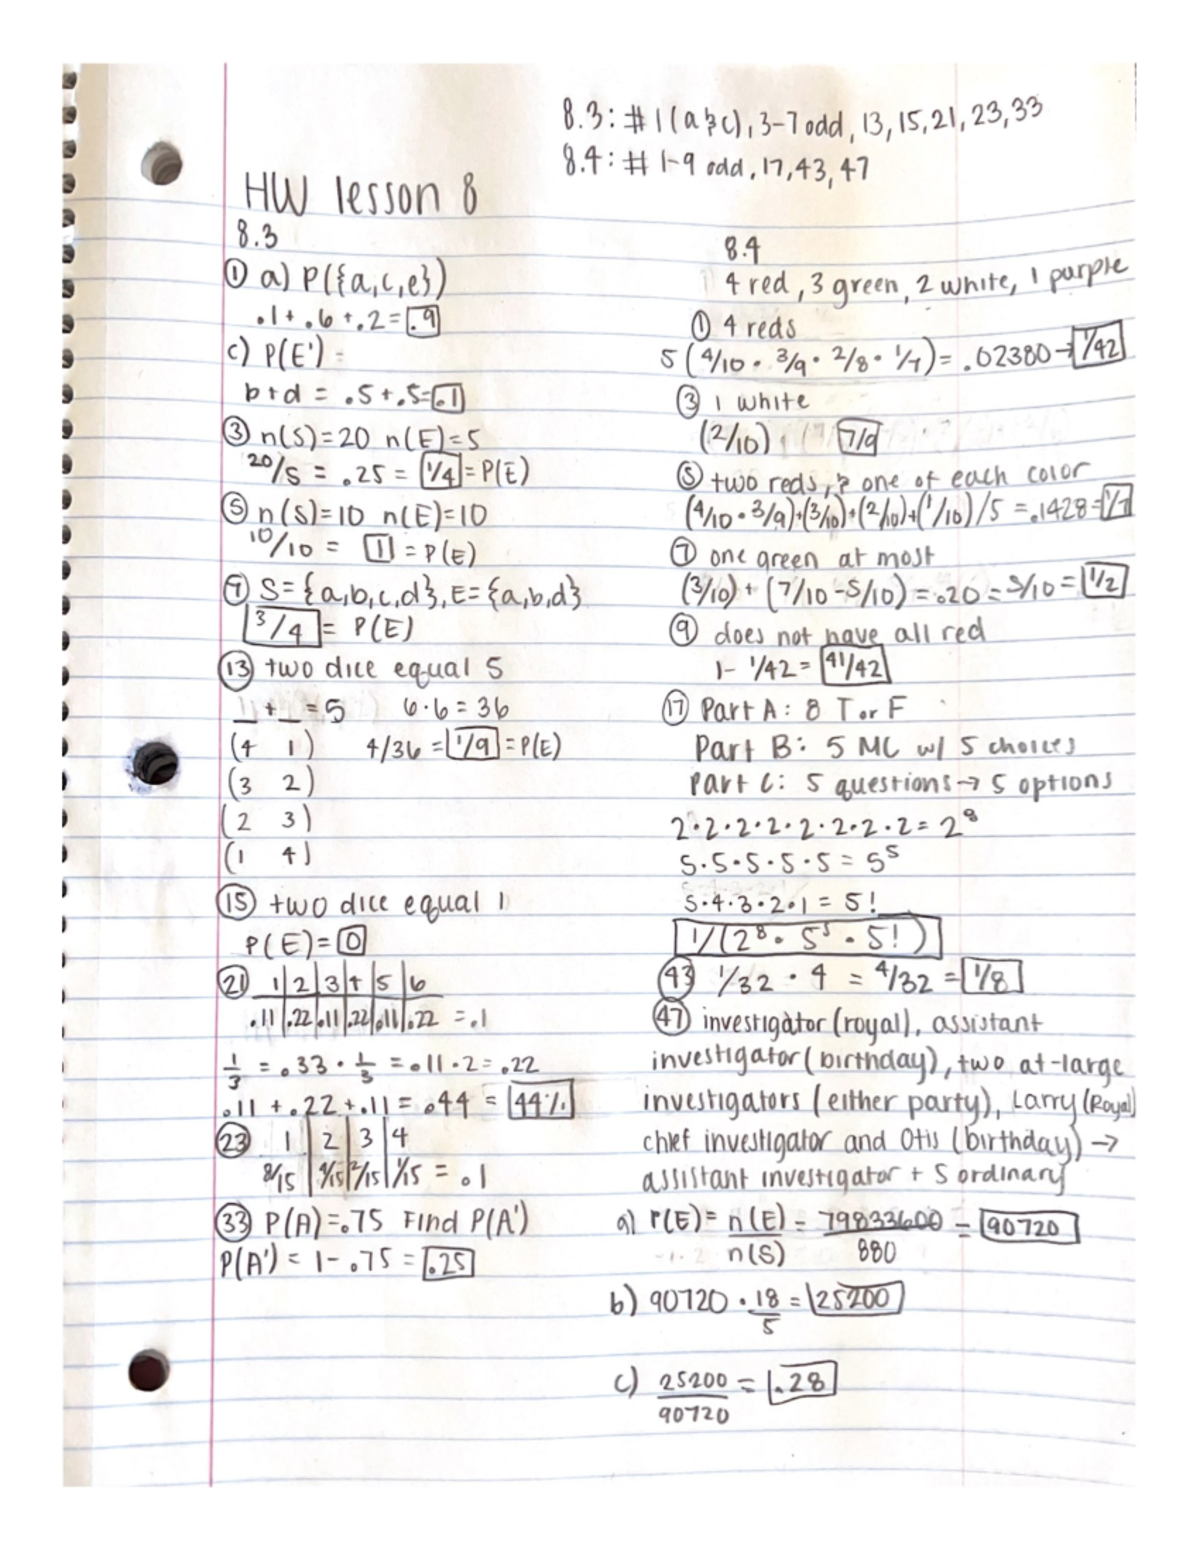 8.3: # 1 (a & c), 3-7 odd, 13, 15, 21, 23, 33
8.4: # 1-9 odd, 17, 43, 47
HW lesson 8
8.3
① a) P({a,c,e})
.1 + .6 + .2 = .9
c) P(E') =
b+d = .5+.5=.1
③ n(S)=20 n(E)=5
20/5 = .25 = 1/4 = P(E)
⑤ n(S)=10 n(E)=10
10/10 = 1 = P(E)
⑦ S={a,b,c,d}, E={a,b,d}
3/4 = P(E)
⑬ two dice equal 5
_ + _ = 5 6·6 = 36
(4 1) 4/36 = 1/9 = P(E)
(3 2)
(2 3)
(1 4)
⑮ two dice equal 1
P(E)= 0
㉑ 1 | 2 | 3 | 4 | 5 | 6
.11 | .22 | .11 | .22 | .11 | .22 = .1
1/3 = .33 · 1/3 = .11 · 2 = .22
.11 + .22 + .11 = .44 = 44%
㉓ 1 | 2 | 3 | 4
8/15 | 4/15 | 2/15 | 1/15 = .1
㉝ P(A)=.75 Find P(A')
P(A') = 1 - .75 = .25
8.4
4 red, 3 green, 2 white, 1 purple
① 4 reds
5 (4/10 · 3/9 · 2/8 · 1/7) = .02380 → 1/42
③ 1 white
(2/10) 7/9
⑤ two reds, & one of each color
(4/10 · 3/9)+(3/10)+(2/10)+(1/10)/5 = .1428 = 1/7
⑦ one green at most
(3/10) + (7/10 - 5/10) = .20 = 5/10 = 1/2
⑨ does not have all red
1 - 1/42 = 41/42
⑰ Part A: 8 T or F
Part B: 5 MC w/ 5 choices
Part C: 5 questions → 5 options
2·2·2·2·2·2·2·2 = 2⁸
5·5·5·5·5 = 5⁵
5·4·3·2·1 = 5!
1/(2⁸ · 5⁵ · 5!)
㊸ 1/32 · 4 = 4/32 = 1/8
㊼ investigator (royal), assistant
investigator (birthday), two at-large
investigators (either party), Larry (Royal)
chief investigator and Otis (birthday) →
assistant investigator + 5 ordinary
a) P(E) = n(E)/n(S) = 79833600/880 = 90720
b) 90720 · 18/5 = 25200
c) 25200/90720 = .28